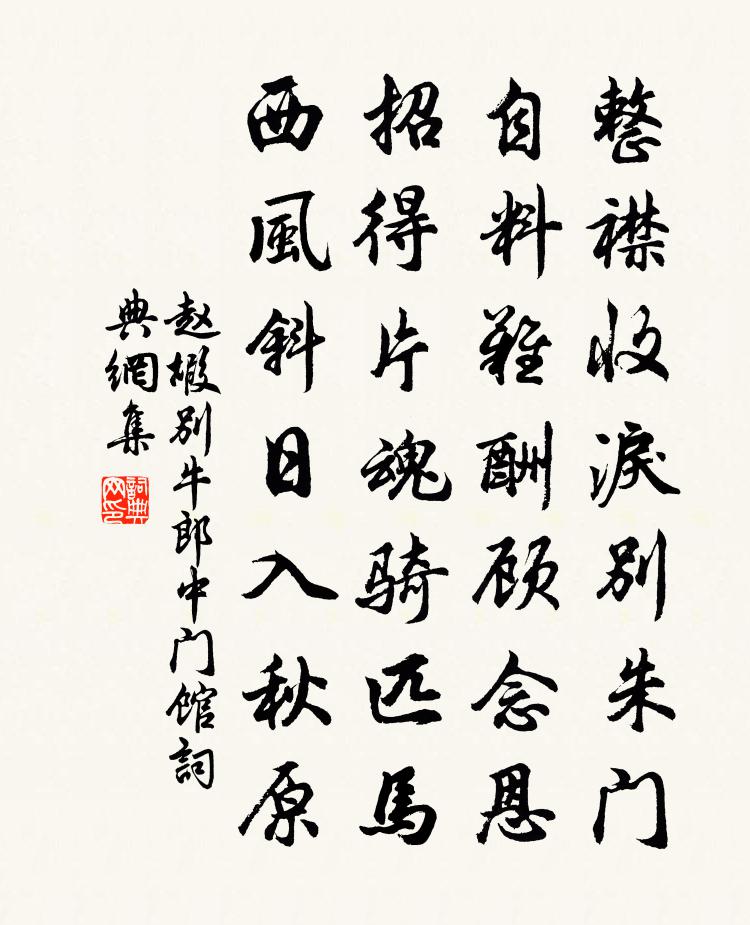 整襟收淚别朱门
自料難酬顾念恩
招得片魂骑匹馬
西風斜日入秋原
赵嘏别牛郎中门館詞
典網集
詞典
网印